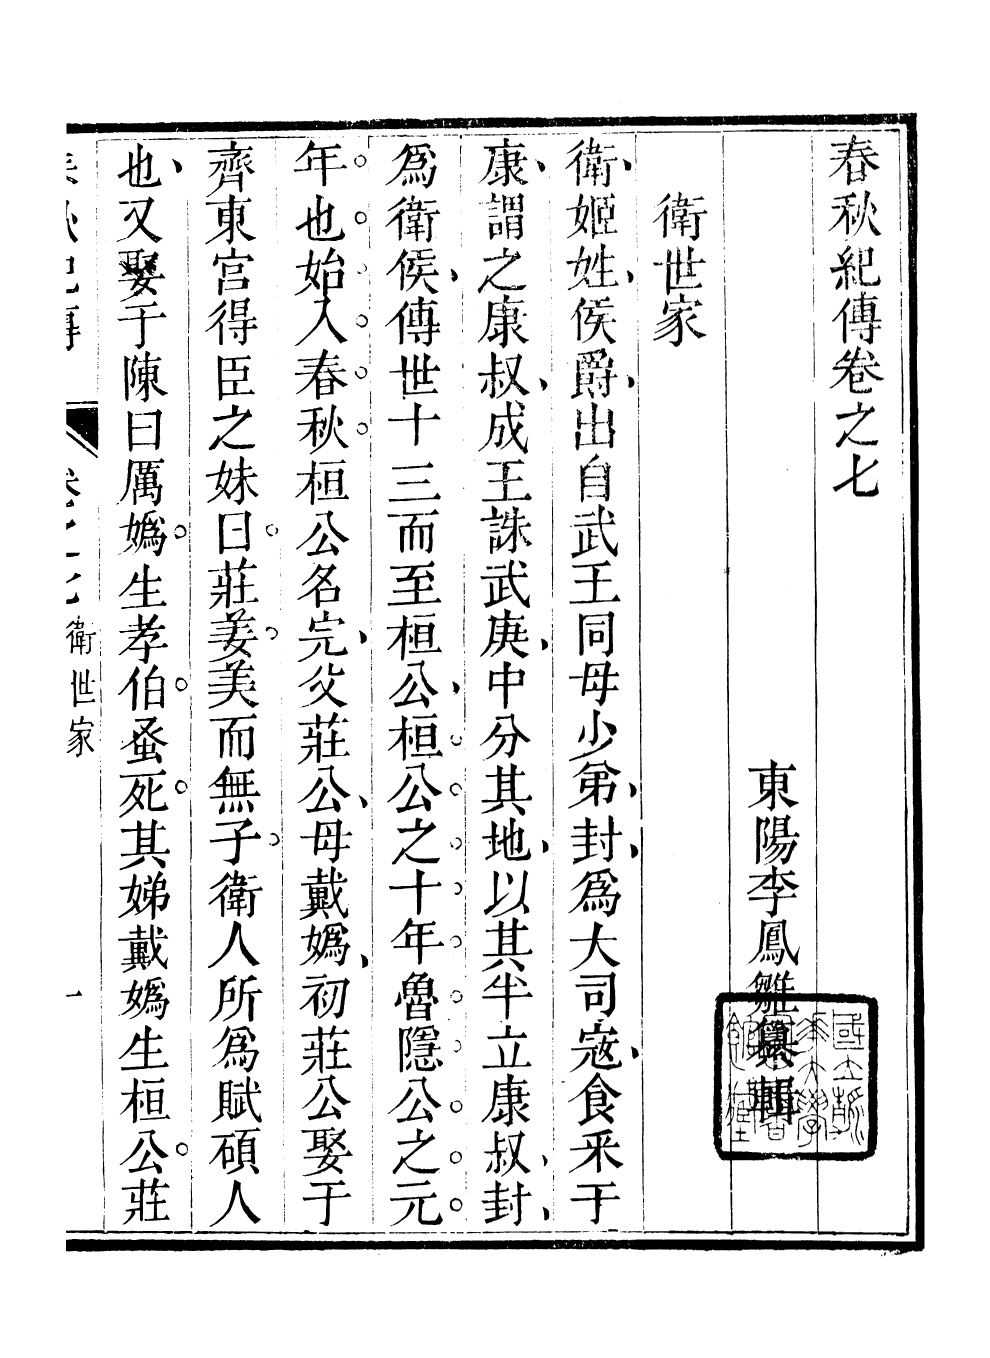 春秋紀傳卷之七
東陽李鳳雛纂輯
衛世家
衛姬姓侯爵出自武王同母少弟封爲大司寇食采于
康謂之康叔成王誅武庚中分其地以其半立康叔封
爲衛侯傳世十三而至桓公桓公之十年魯隱公之元
年也始入春秋桓公名完父莊公母戴嬀初莊公娶于
齊東宮得臣之妹曰莊姜美而無子衛人所爲賦碩人
也又娶于陳曰厲嬀生孝伯蚤死其娣戴嬀生桓公莊
卷之七
衛世家
一